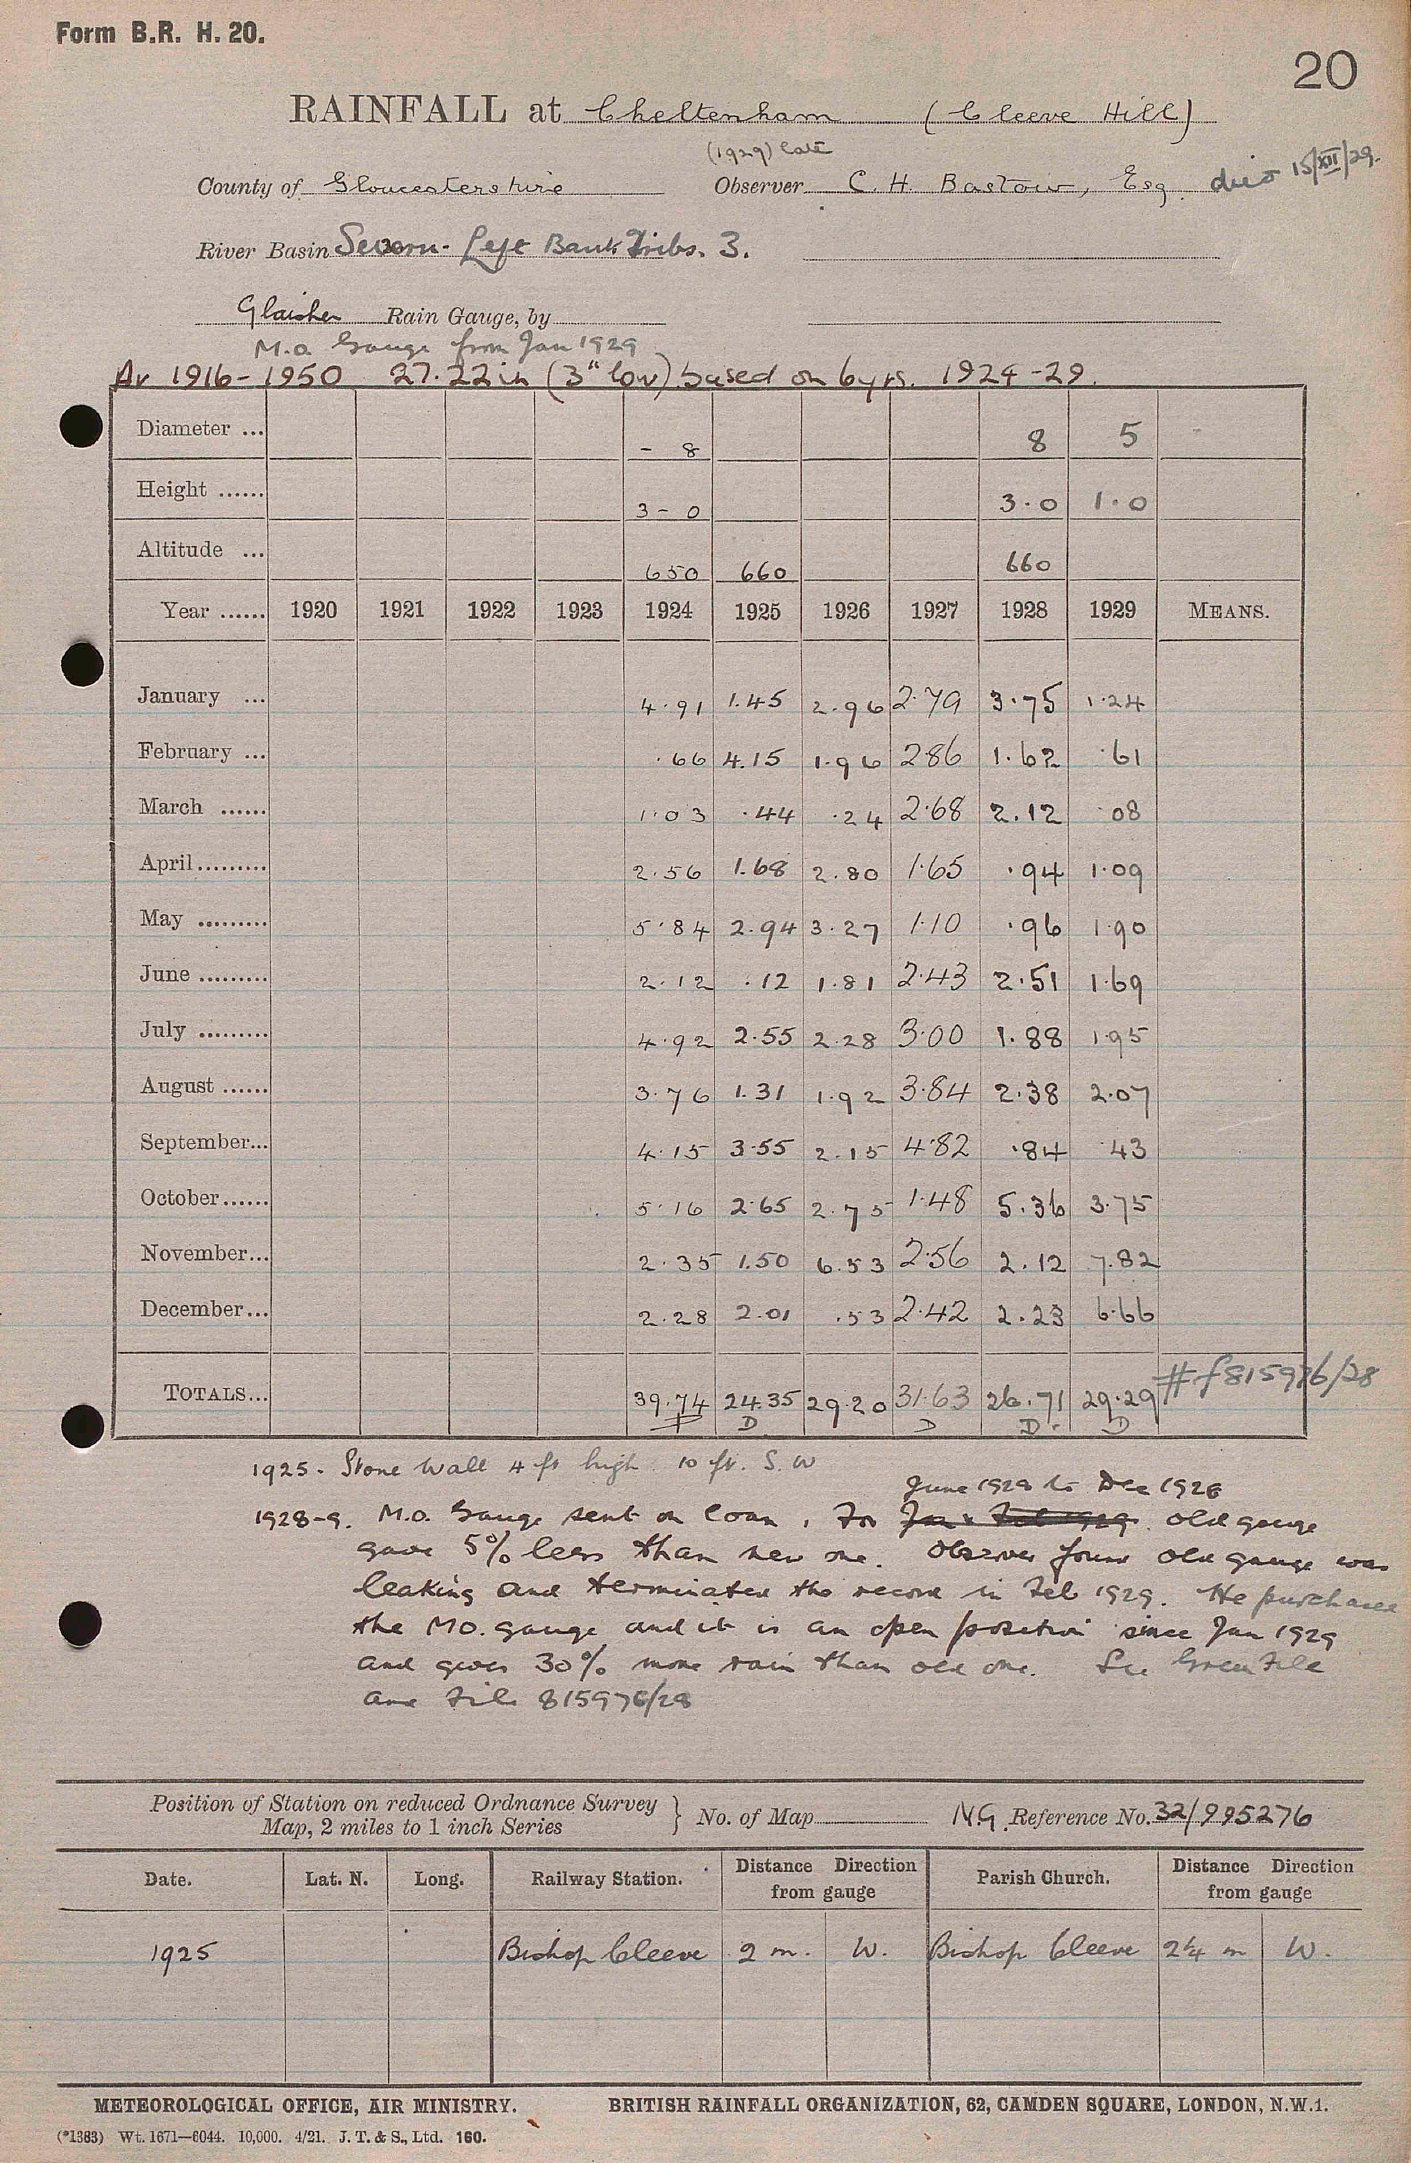 Form B.R. H. 20.
20
RAINFALL at Cheltenham (Cleeve Hill)
(1929) late
County of Gloucestershire Observer C. H. Bastow, Esq. died 15/XII/29.
River Basin Severn - Left Bank Tribs. 3.
Glaisher Rain Gauge, by
M.O. Gauge from Jan 1929
Av 1916-1950 27.22 in (3" low) based on 6 yrs. 1924-29.
Diameter ... - 8 8 5
Height ...... 3 - 0 3.0 1.0
Altitude ... 650 660 660
Year ...... 1920 1921 1922 1923 1924 1925 1926 1927 1928 1929 MEANS.
January ... 4.91 1.45 2.96 2.79 3.75 1.24
February ... .66 4.15 1.96 2.86 1.62 .61
March ...... 1.03 .44 .24 2.68 2.12 .08
April ......... 2.56 1.68 2.80 1.65 .94 1.09
May ......... 5.84 2.94 3.27 1.10 .96 1.90
June ......... 2.12 .12 1.81 2.43 2.51 1.69
July ......... 4.92 2.55 2.28 3.00 1.88 1.95
August ...... 3.76 1.31 1.92 3.84 2.38 2.07
September... 4.15 3.55 2.15 4.82 .84 .43
October...... 5.16 2.65 2.75 1.48 5.36 3.75
November... 2.35 1.50 6.53 2.56 2.12 7.82
December... 2.28 2.01 .53 2.42 2.23 6.66
TOTALS... 39.74 24.35 29.20 31.63 26.71 29.29 # f815976/28
D D D D
1925 - Stone Wall 4 ft high 10 ft. S.W
June 1928 to Dec 1928
1928-9. M.O. Gauge sent on loan, For Jan & Feb 1929. old gauge
gave 5% less than new one. Observer found old gauge was
leaking and terminated the record in Feb 1929. He purchased
the MO. gauge and it is an open position since Jan 1929
and gives 30% more rain than old one. See Green File
and File 815976/28
Position of Station on reduced Ordnance Survey
Map, 2 miles to 1 inch Series } No. of Map N.G. Reference No. 32/995276
Date. Lat. N. Long. Railway Station. Distance Direction from gauge Parish Church. Distance Direction from gauge
1925 Bishop Cleeve 2 m. W. Bishop Cleeve 2¼ m W.
METEOROLOGICAL OFFICE, AIR MINISTRY. BRITISH RAINFALL ORGANIZATION, 62, CAMDEN SQUARE, LONDON, N.W.1.
(*1383) Wt. 1671—6044. 10,000. 4/21. J. T. & S., Ltd. 160.